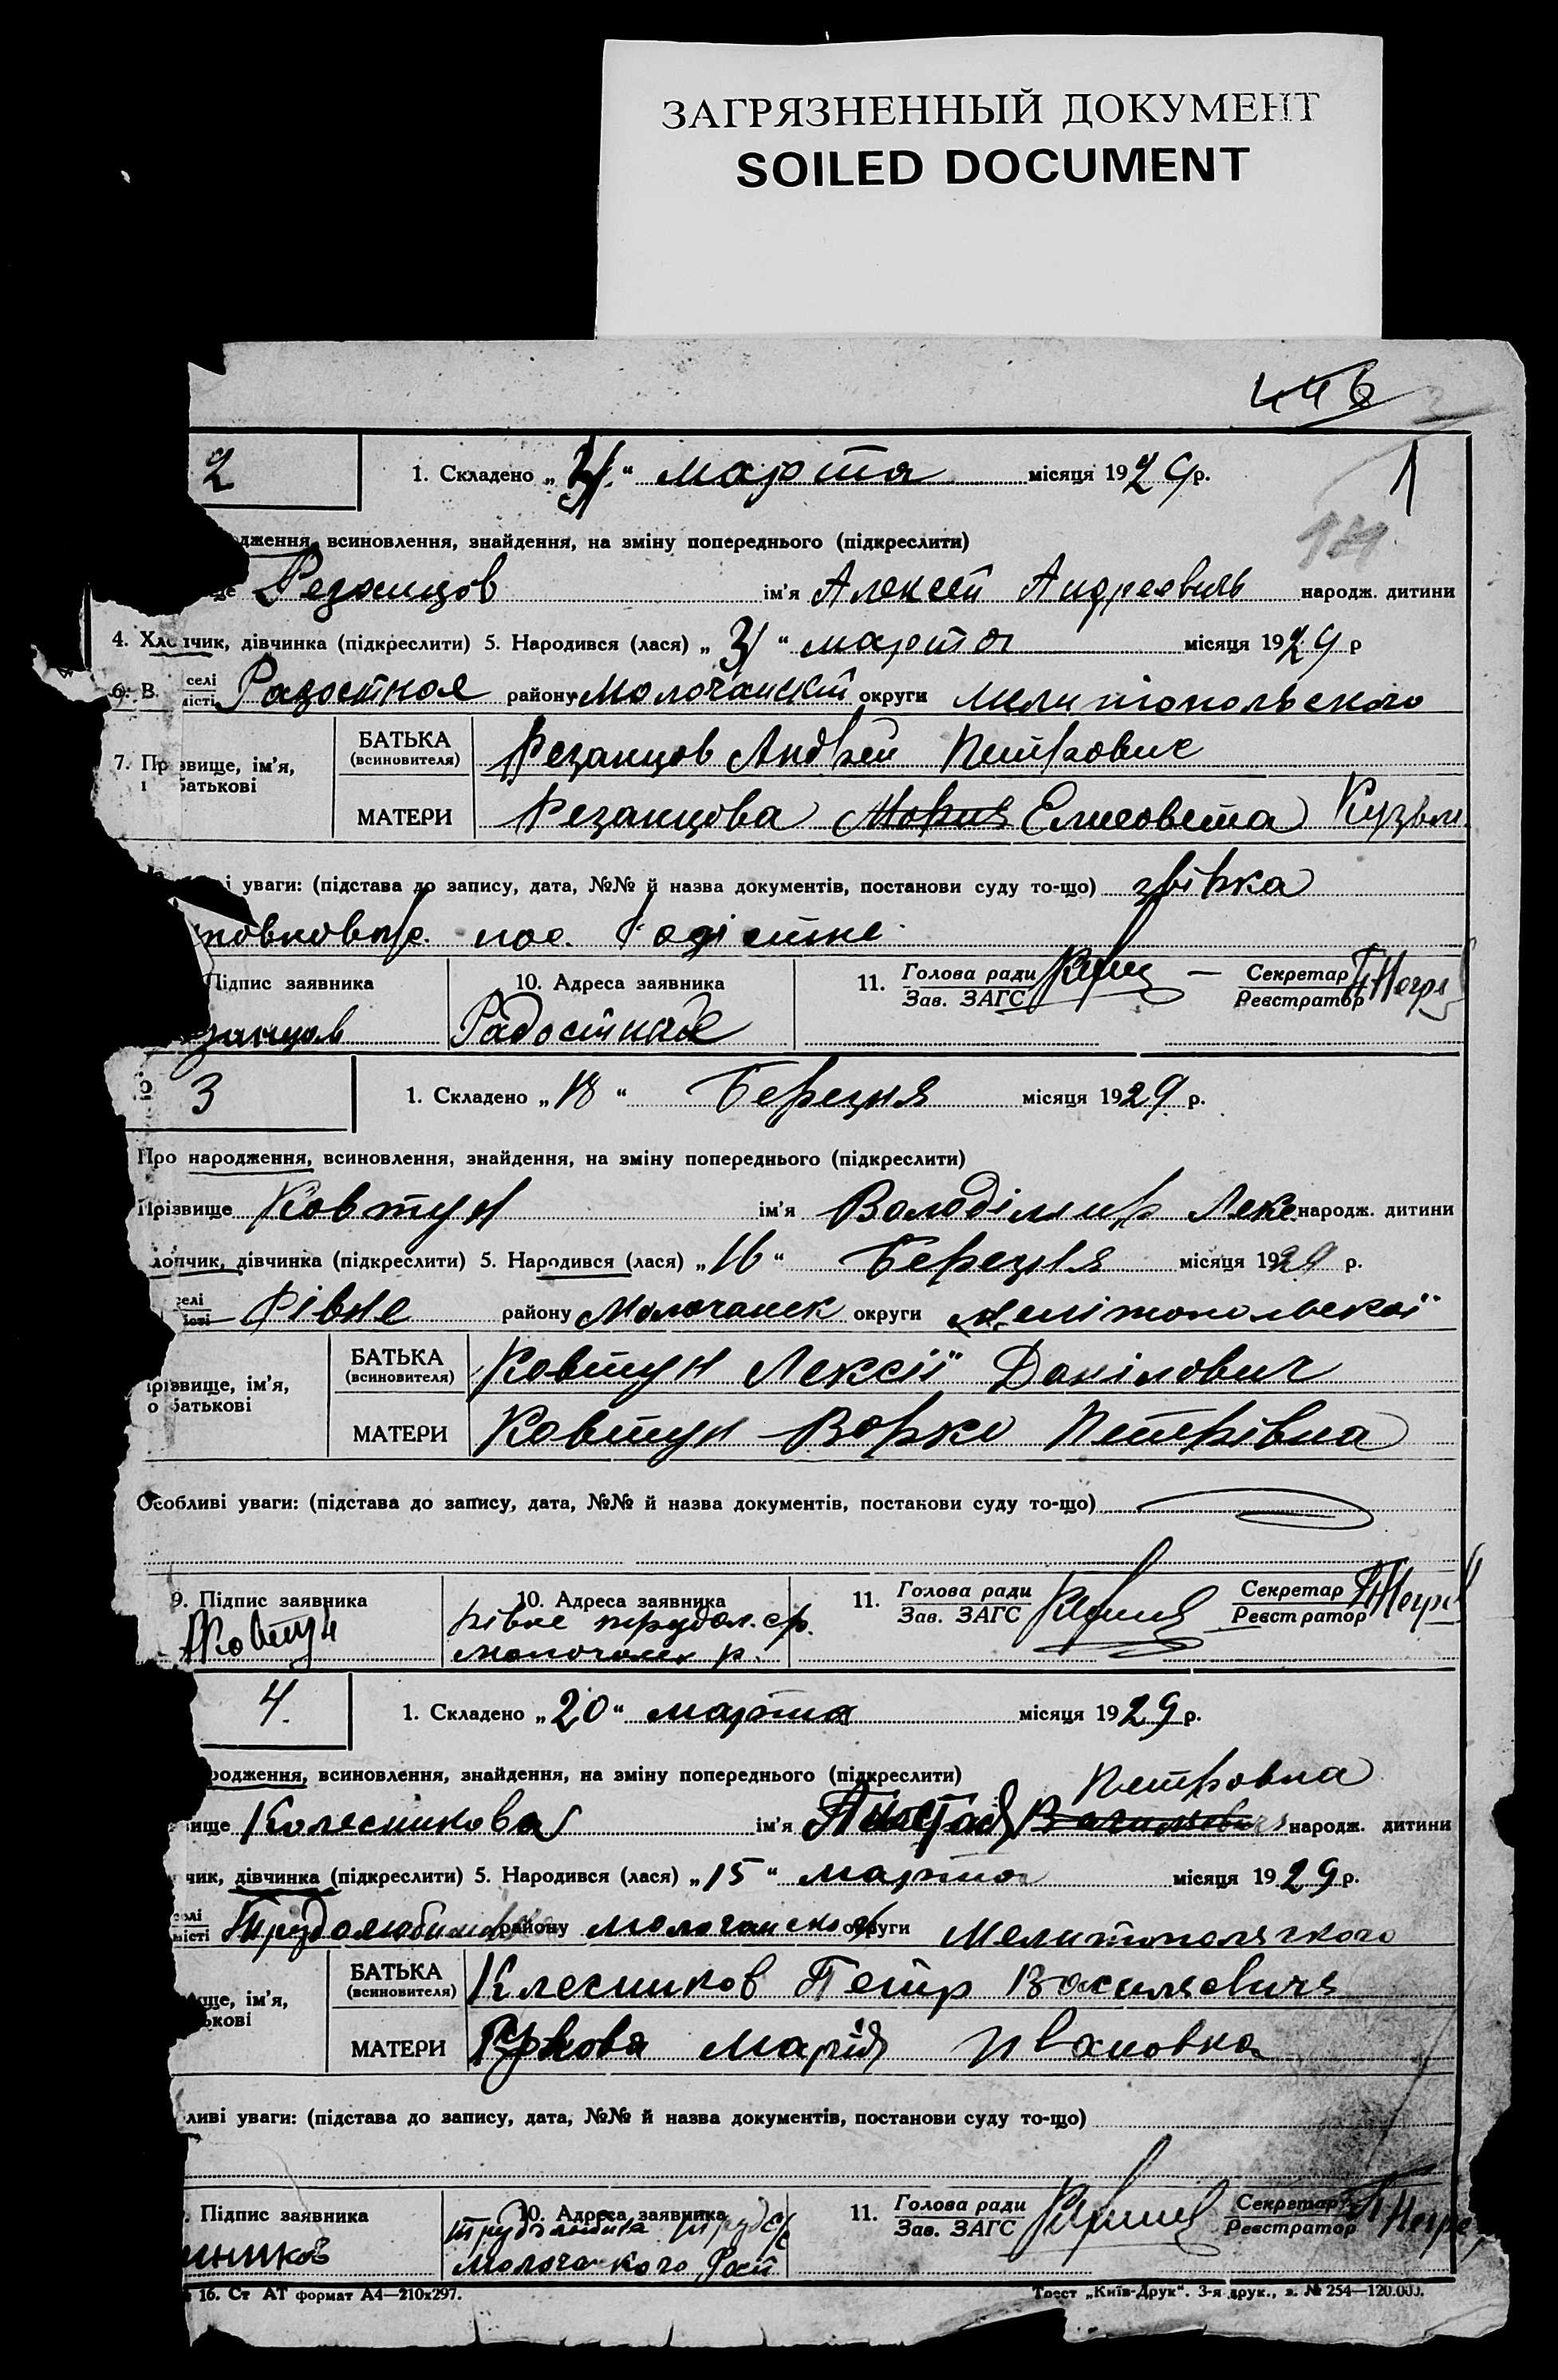 ЗАГРЯЗНЕННЫЙ ДОКУМЕНТ
SOILED DOCUMENT
446
2 1. Складено „ “ марта місяця 1929 р. 1
одження, всиновлення, знайдення, на зміну попереднього (підкреслити)
Резанцов ім'я Алексей Андреевичь народж. дитини
4. Хлопчик, дівчинка (підкреслити) 5. Народився (лася) „ “ марта місяця 1929 р
6. В. селі місті Радостное району Молочанский округи Мелитопольского
7. Прізвище, ім'я, батькові БАТЬКА (всиновителя) Резанцов Андрей Петрович
МАТЕРИ Резанцова Мария Елисовета Кузьм
уваги: (підстава до запису, дата, №№ й назва документів, постанови суду то-що) звірка
пос.
Підпис заявника 10. Адреса заявника 11. Голова ради Зав. ЗАГС Секретар Реєстратор
занцов Радостное
3 1. Складено „18“ Березня місяця 1929 р.
Про народження, всиновлення, знайдення, на зміну попереднього (підкреслити)
Прізвище Ковтун ім'я Володімир Лекс народж. дитини
лопчик, дівчинка (підкреслити) 5. Народився (лася) „16“ Березня місяця 1929 р.
селі Рівне району Молочанск округи Мелітопольскої
різвище, ім'я, о батькові БАТЬКА (всиновителя) Ковтун Лексій Данілович
МАТЕРИ Ковтун Варка Петрівна
Особливі уваги: (підстава до запису, дата, №№ й назва документів, постанови суду то-що)
9. Підпис заявника 10. Адреса заявника 11. Голова ради Зав. ЗАГС Секретар Реєстратор
Ковтун Рівне трудол. с/р.
молочанск р.
4. 1. Складено „20“ марта місяця 1929 р.
родження, всиновлення, знайдення, на зміну попереднього (підкреслити) Петровна
вище Колесникова ім'я народж. дитини
чик, дівчинка (підкреслити) 5. Народився (лася) „15“ марта місяця 1929 р.
селі місті району молочанского округи Мелитополячкого
ще, ім'я, ькові БАТЬКА (всиновителя) Клесников Петр Василяевичя
МАТЕРИ Марія Ивановна
ливі уваги: (підстава до запису, дата, №№ й назва документів, постанови суду то-що)
Підпис заявника 10. Адреса заявника 11. Голова ради Зав. ЗАГС Секретар Реєстратор
ников
16. Ст АТ формат А4—210х297. Трест „Київ-Друк“. 3-я друк., з. № 254—120.000.